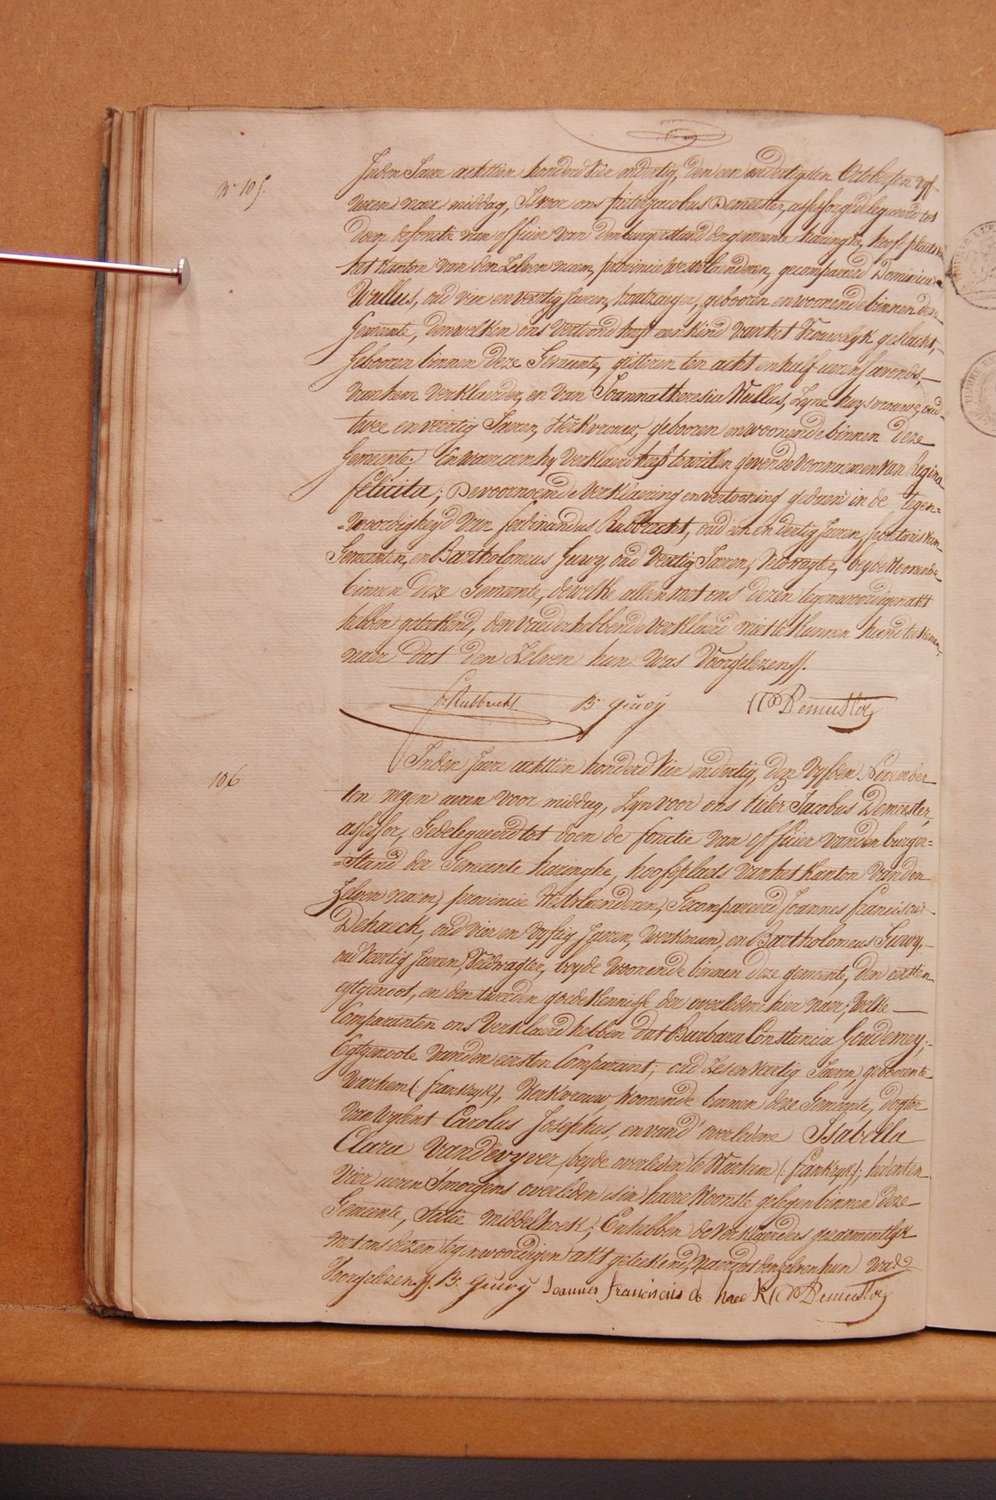 N° 105.
In den Jaere achttien honderd vier en dertig, den een en dertigsten October ten vyf
uren naer middag, is voor ons pieter jacobus Demeester, assessor gedelegueerd tot
doen de fonctie van officier van den burgerstand der gemeente haringhe, hoofdplaets van
het kanton van den zelven naem, provincie westvlaenderen, gecompareerd Dominicus
Wullus, oud vier en veertig jaeren, geboren en woonende binnen deze
Gemeente, denwelken ons vertoond heeft een kind van het Vrouwelyk geslacht,
Geboren binnen deze Gemeente, gisteren ten acht en half uren s'avonds,
van hem verklaerder, en van Joanna theresia Wullus, zyne huysvrouw, oud
twee en veertig Jaeren, Werkvrouw, geboren en woonende binnen deze
Gemeente, En waer aen hy verklaerd heeft te willen geven de Voornaemen van Regina
felicita; De voornoemde verklaering en vertooning gedaen in de tegen=
=woordigheyd van ferdinandus Rubbrecht, oud een en dertig jaeren, secretaris van
Gemeenten, en Bartholomeus Juwy oud Veertig Jaeren, Veldwagter, beyde Woonende
binnen deze Gemeente, dewelke allen met ons dezen tegenwoordigen akt
hebben geteekend, den vader hebbende verklaerd niet te kunnen
naer dat den Zelven hun was Voorgelezen.
F. Rubbrecht B. Juwy P J Demeester
106
In den Jaere achttien honderd vier en dertig, den vyfden November
ten negen uren voor middag, zyn voor ons Pieter Jacobus Demeester,
assessor, Gedelegueerd tot doen de fonctie van officier van den burger=
=Stand der Gemeente haringhe, hoofdplaets van het kanton van den
Zelven naem, provincie Westvlaenderen, Gecompareerd, Joannes franciscus
Dehaeck, oud vier en vyftig Jaeren, Werkman, en Bartholomeus Juwy,
oud Veertig Jaeren, Veldwagter, beyde woonende binnen deze gemeente, den eersten
egtgenoot, en den tweeden goede kennisse der overleden hier naer, Welke
Comparanten ons Verklaerd hebben dat Barbara Constencia Goudeney,
Egtgenoote van den eersten Comparant, oud zes en veertig Jaeren, geboren te
Warhem (frankryk), Werkvrouw, woonende binnen deze Gemeente, dogter
van wylent Carolus Josephus, en van d'overledene Isabella
Clara Vandevyver, beyde overleden te Warhem (frankryk), heden ten
vier uren s'morgens overleden is in haere Woonste gelegen binnen deze
Gemeente, Sectie middelhoek; En hebben de verklaerders gezamentlyk
met ons dezen tegenwoordigen akt geteekend, naer dat den zelven hun was
Voorgelezen. B. Juwy Joannes franciscus de haeck P J Demeester